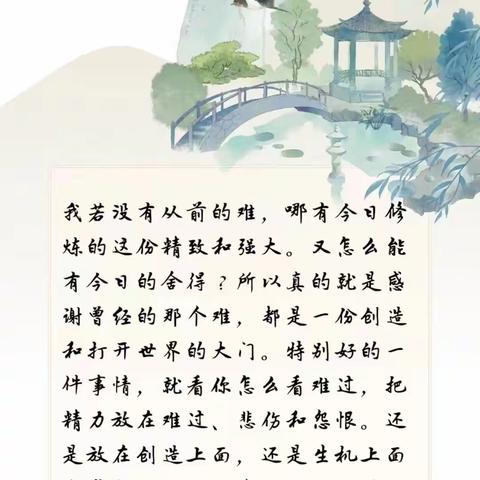 我若没有从前的难，哪有今日修
炼的这份精致和强大。又怎么能
有今日的舍得？所以真的就是感
谢曾经的那个难，都是一份创造
和打开世界的大门。特别好的一
件事情，就看你怎么看难过，把
精力放在难过、悲伤和怨恨。还
是放在创造上面，还是生机上面